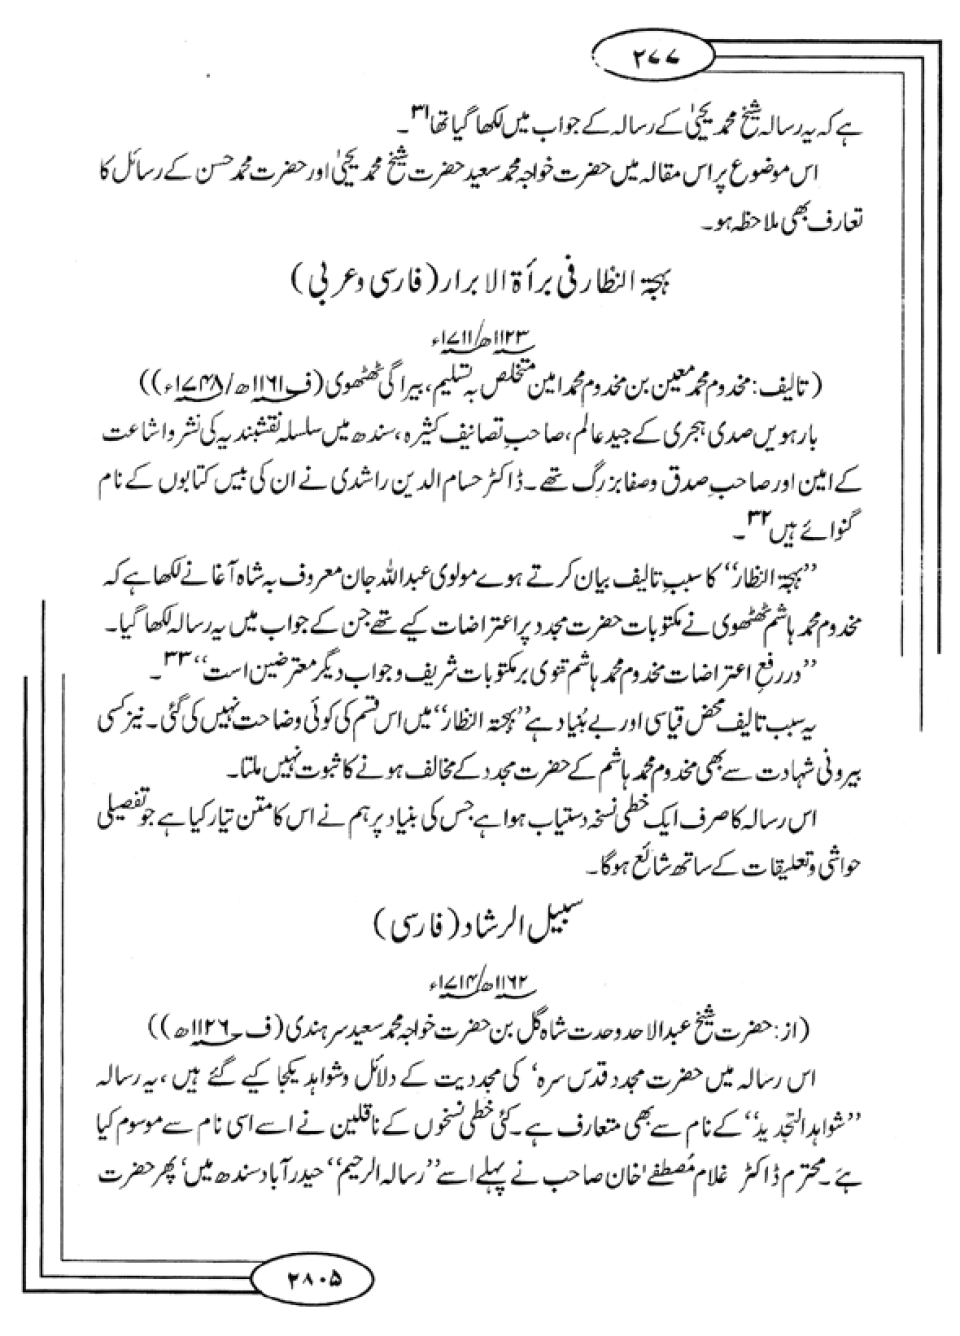 ۲۷۷
ہے کہ یہ رسالہ شیخ محمد یحییٰ کے رسالہ کے جواب میں لکھا گیا تھا۳۱۔
اس موضوع پر اس مقالہ میں حضرت خواجہ محمد سعید حضرت شیخ محمد یحییٰ اور حضرت محمد حسن کے رسائل کا
تعارف بھی ملاحظہ ہو۔
بہجۃ النظار فی برأۃ الابرار (فارسی و عربی)
۱۱۲۳ھ/۱۷۱۱ء
(تالیف: مخدوم محمد معین بن مخدوم محمد امین متخلص بہ تسلیم، بیراگی ٹھٹھوی (ف ۱۱۶۱ھ/۱۷۴۸ء))
بارہویں صدی ہجری کے جید عالم، صاحبِ تصانیف کثیرہ، سندھ میں سلسلہ نقشبندیہ کی نشر و اشاعت
کے امین اور صاحبِ صدق و صفا بزرگ تھے۔ ڈاکٹر حسام الدین راشدی نے ان کی بیس کتابوں کے نام
گنوائے ہیں۳۲۔
”بہجۃ النظار“ کا سببِ تالیف بیان کرتے ہوے مولوی عبداللہ جان معروف بہ شاہ آغا نے لکھا ہے کہ
مخدوم محمد ہاشم ٹھٹھوی نے مکتوبات حضرت مجدد پر اعتراضات کیے تھے جن کے جواب میں یہ رسالہ لکھا گیا۔
”در رفع اعتراضات مخدوم محمد ہاشم تتوی بر مکتوبات شریف و جواب دیگر معترضین است“۳۳۔
یہ سبب تالیف محض قیاسی اور بے بُنیاد ہے ”بہجۃ النظار“ میں اس قسم کی کوئی وضاحت نہیں کی گئی۔ نیز کسی
بیرونی شہادت سے بھی مخدوم محمد ہاشم کے حضرت مجدد کے مخالف ہونے کا ثبوت نہیں ملتا۔
اس رسالہ کا صرف ایک خطی نسخہ دستیاب ہوا ہے جس کی بنیاد پر ہم نے اس کا متن تیار کیا ہے جو تفصیلی
حواشی و تعلیقات کے ساتھ شائع ہوگا۔
سبیل الرشاد (فارسی)
۱۱۶۲ھ/۱۷۱۴ء
(از: حضرت شیخ عبدالاحد وحدت شاہ گل بن حضرت خواجہ محمد سعید سرہندی (ف ۱۱۲۶ھ))
اس رسالہ میں حضرت مجدد قدس سرہ‘ کی مجددیت کے دلائل و شواہد یکجا کیے گئے ہیں، یہ رسالہ
”شواہد التجدید“ کے نام سے بھی متعارف ہے۔ کئی خطی نسخوں کے ناقلین نے اسے اسی نام سے موسوم کیا
ہے۔ محترم ڈاکٹر غلام مُصطفےٰ خان صاحب نے پہلے اسے ”رسالہ الرحیم“ حیدرآباد سندھ میں‘ پھر حضرت
۲۸۰۵